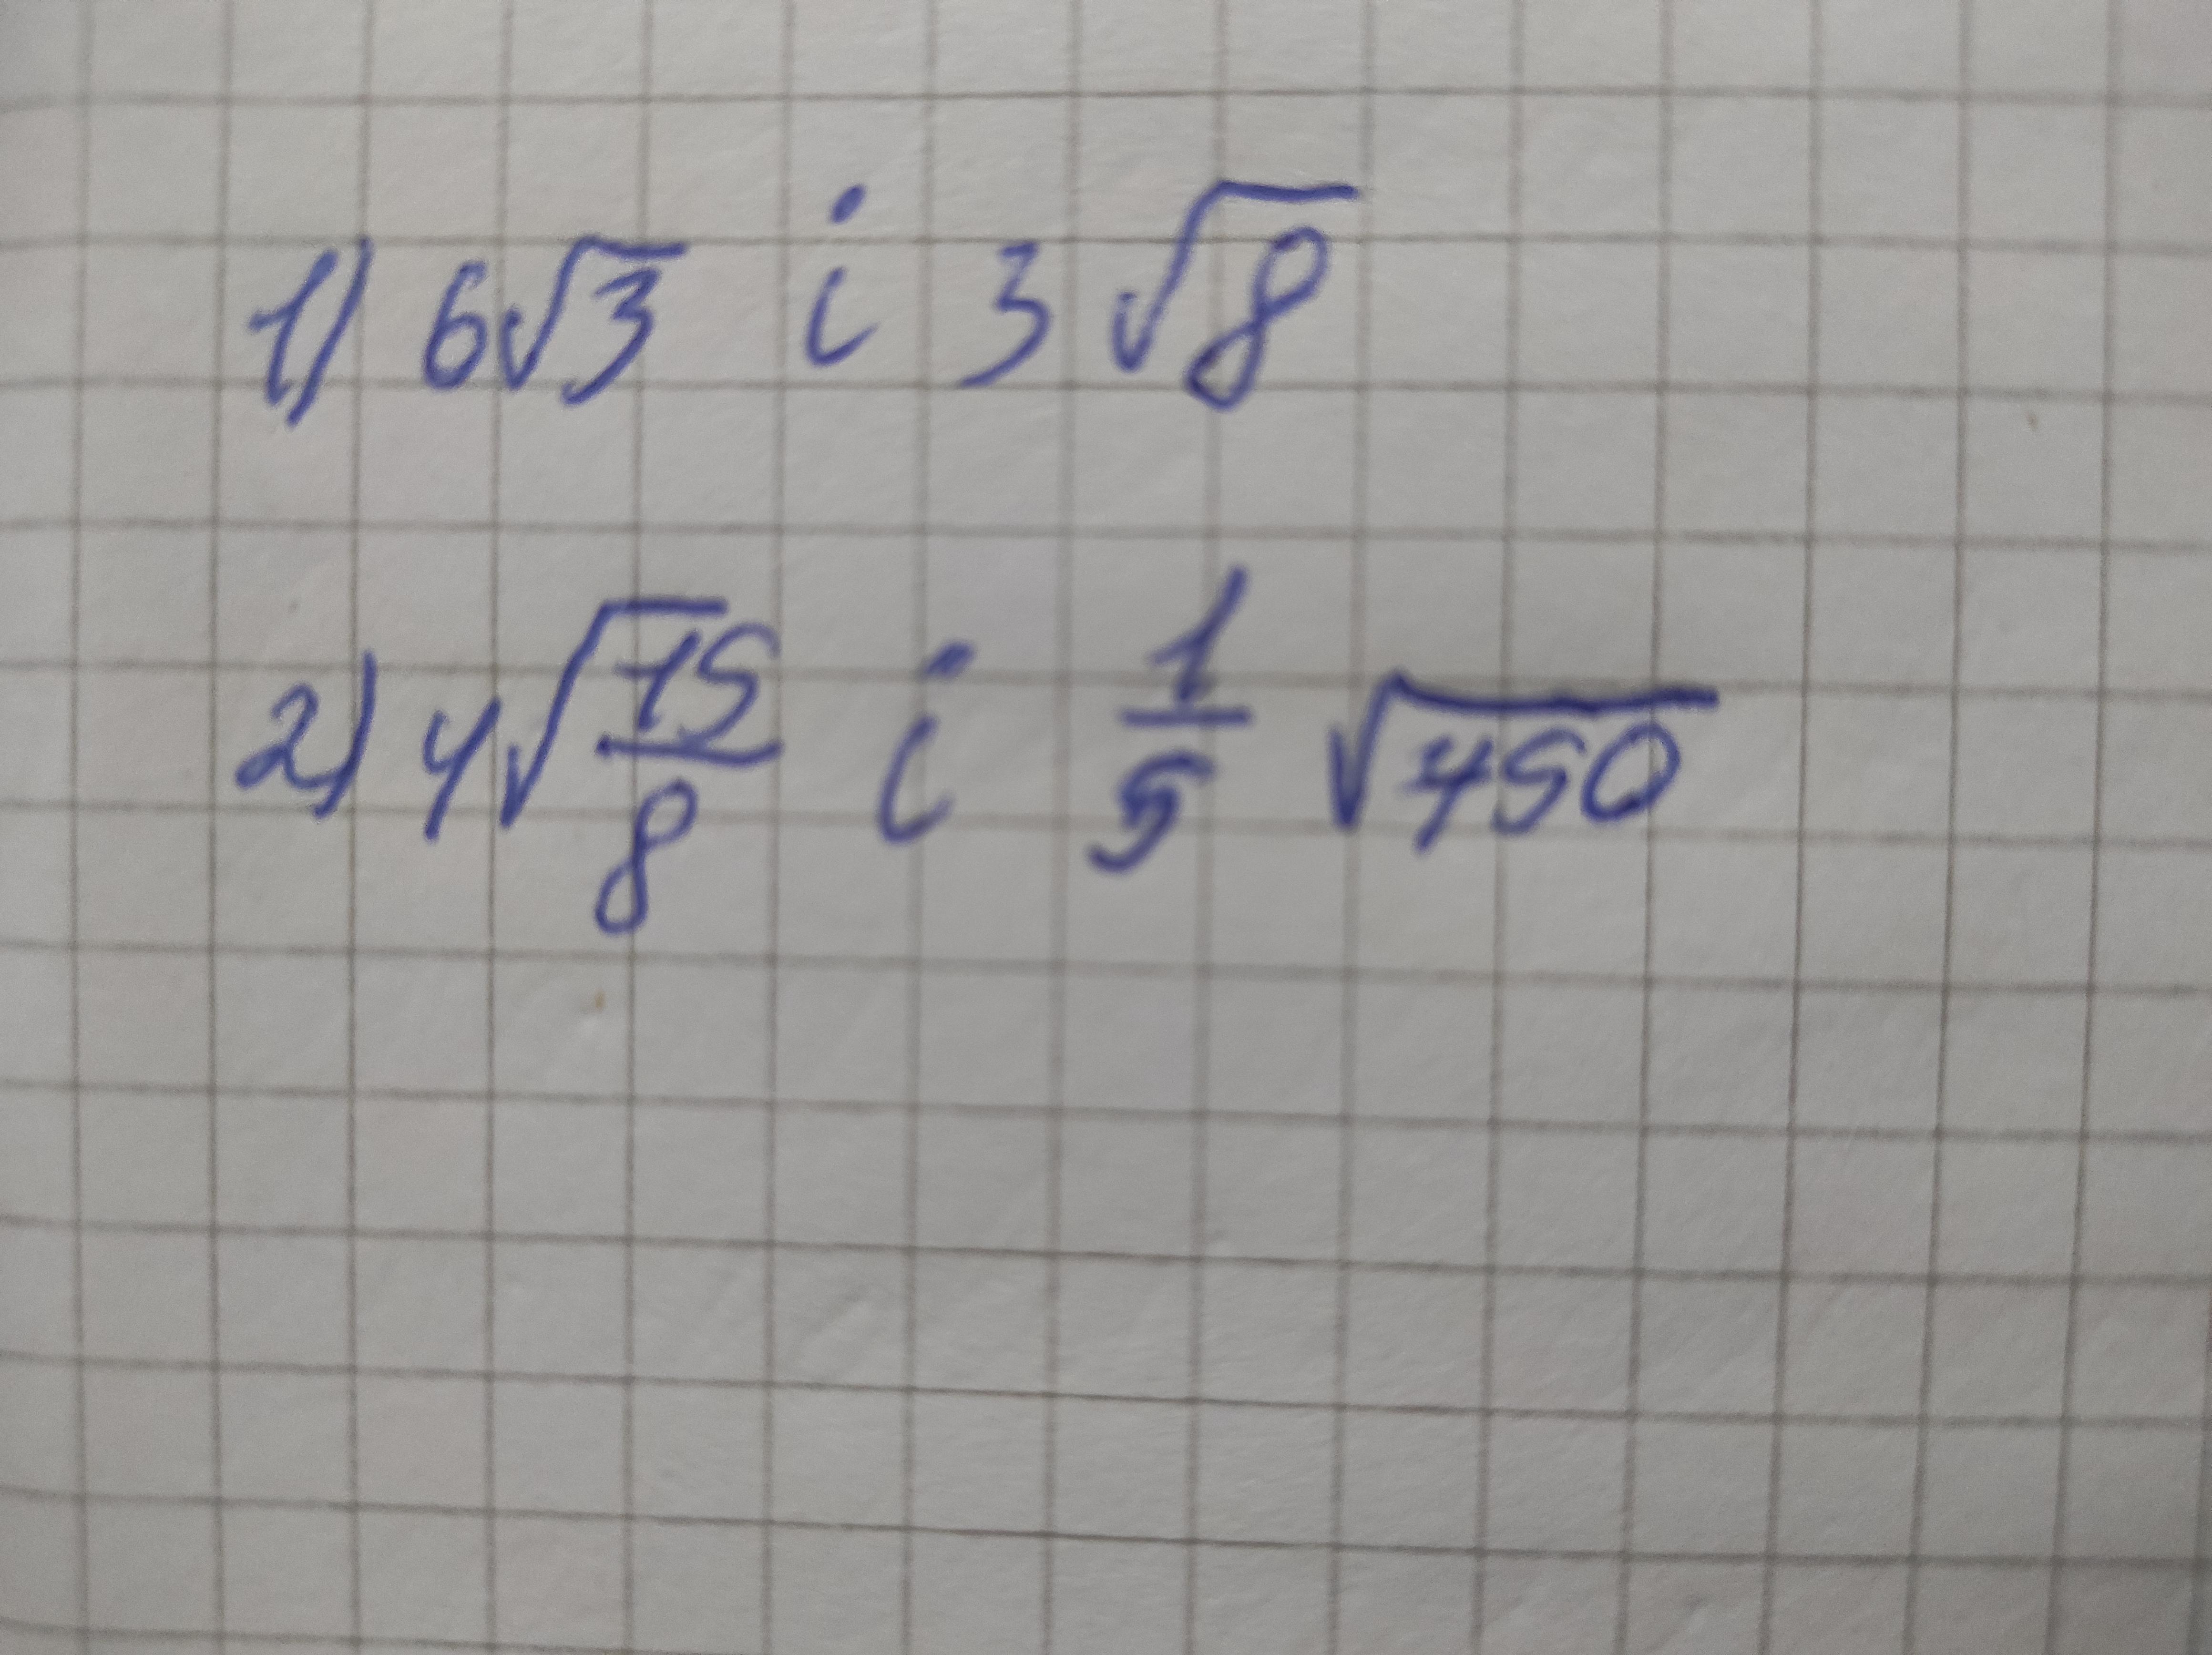 1) 6√3 i 3√8
2) 4√(15/8) i 1/5 √450